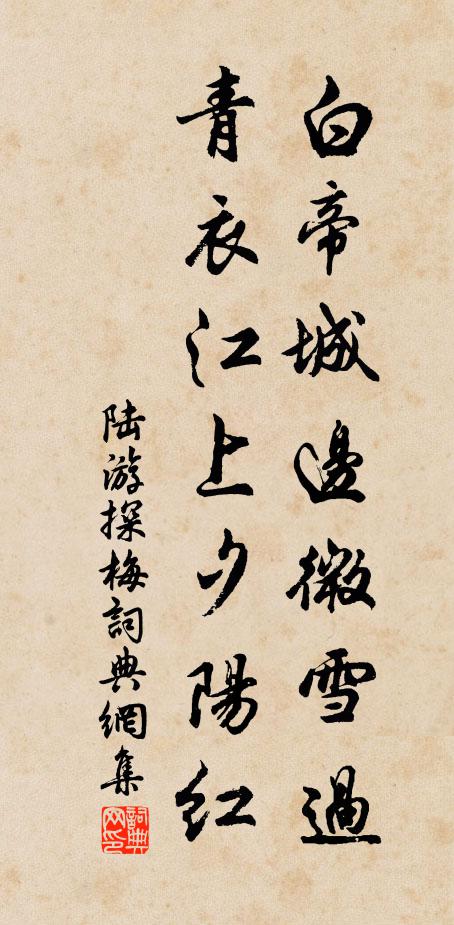 白帝城邊微雪過
青衣江上夕陽紅
陸游探梅詞典網集
詞典网印